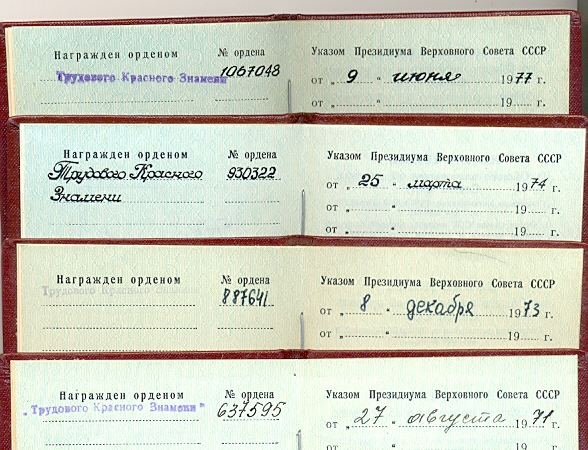 Награжден орденом № ордена Указом Президиума Верховного Совета СССР
Трудового Красного Знамени 1067048 от „ 9 “ июня 1977 г.
Награжден орденом № ордена Указом Президиума Верховного Совета СССР
Трудового Красного 930322 от „ 25 “ марта 1974 г.
Знамени от „ “ 19 г.
от „ “ 19 г.
Награжден орденом № ордена Указом Президиума Верховного Совета СССР
Трудового Красного Знамени 887641 от „ 8 “ декабря 1973 г.
от „ “ 19 г.
Награжден орденом № ордена Указом Президиума Верховного Совета СССР
"Трудового Красного Знамени" 637595 от „ 27 “ августа 1971 г.
от „ “ 19 г.